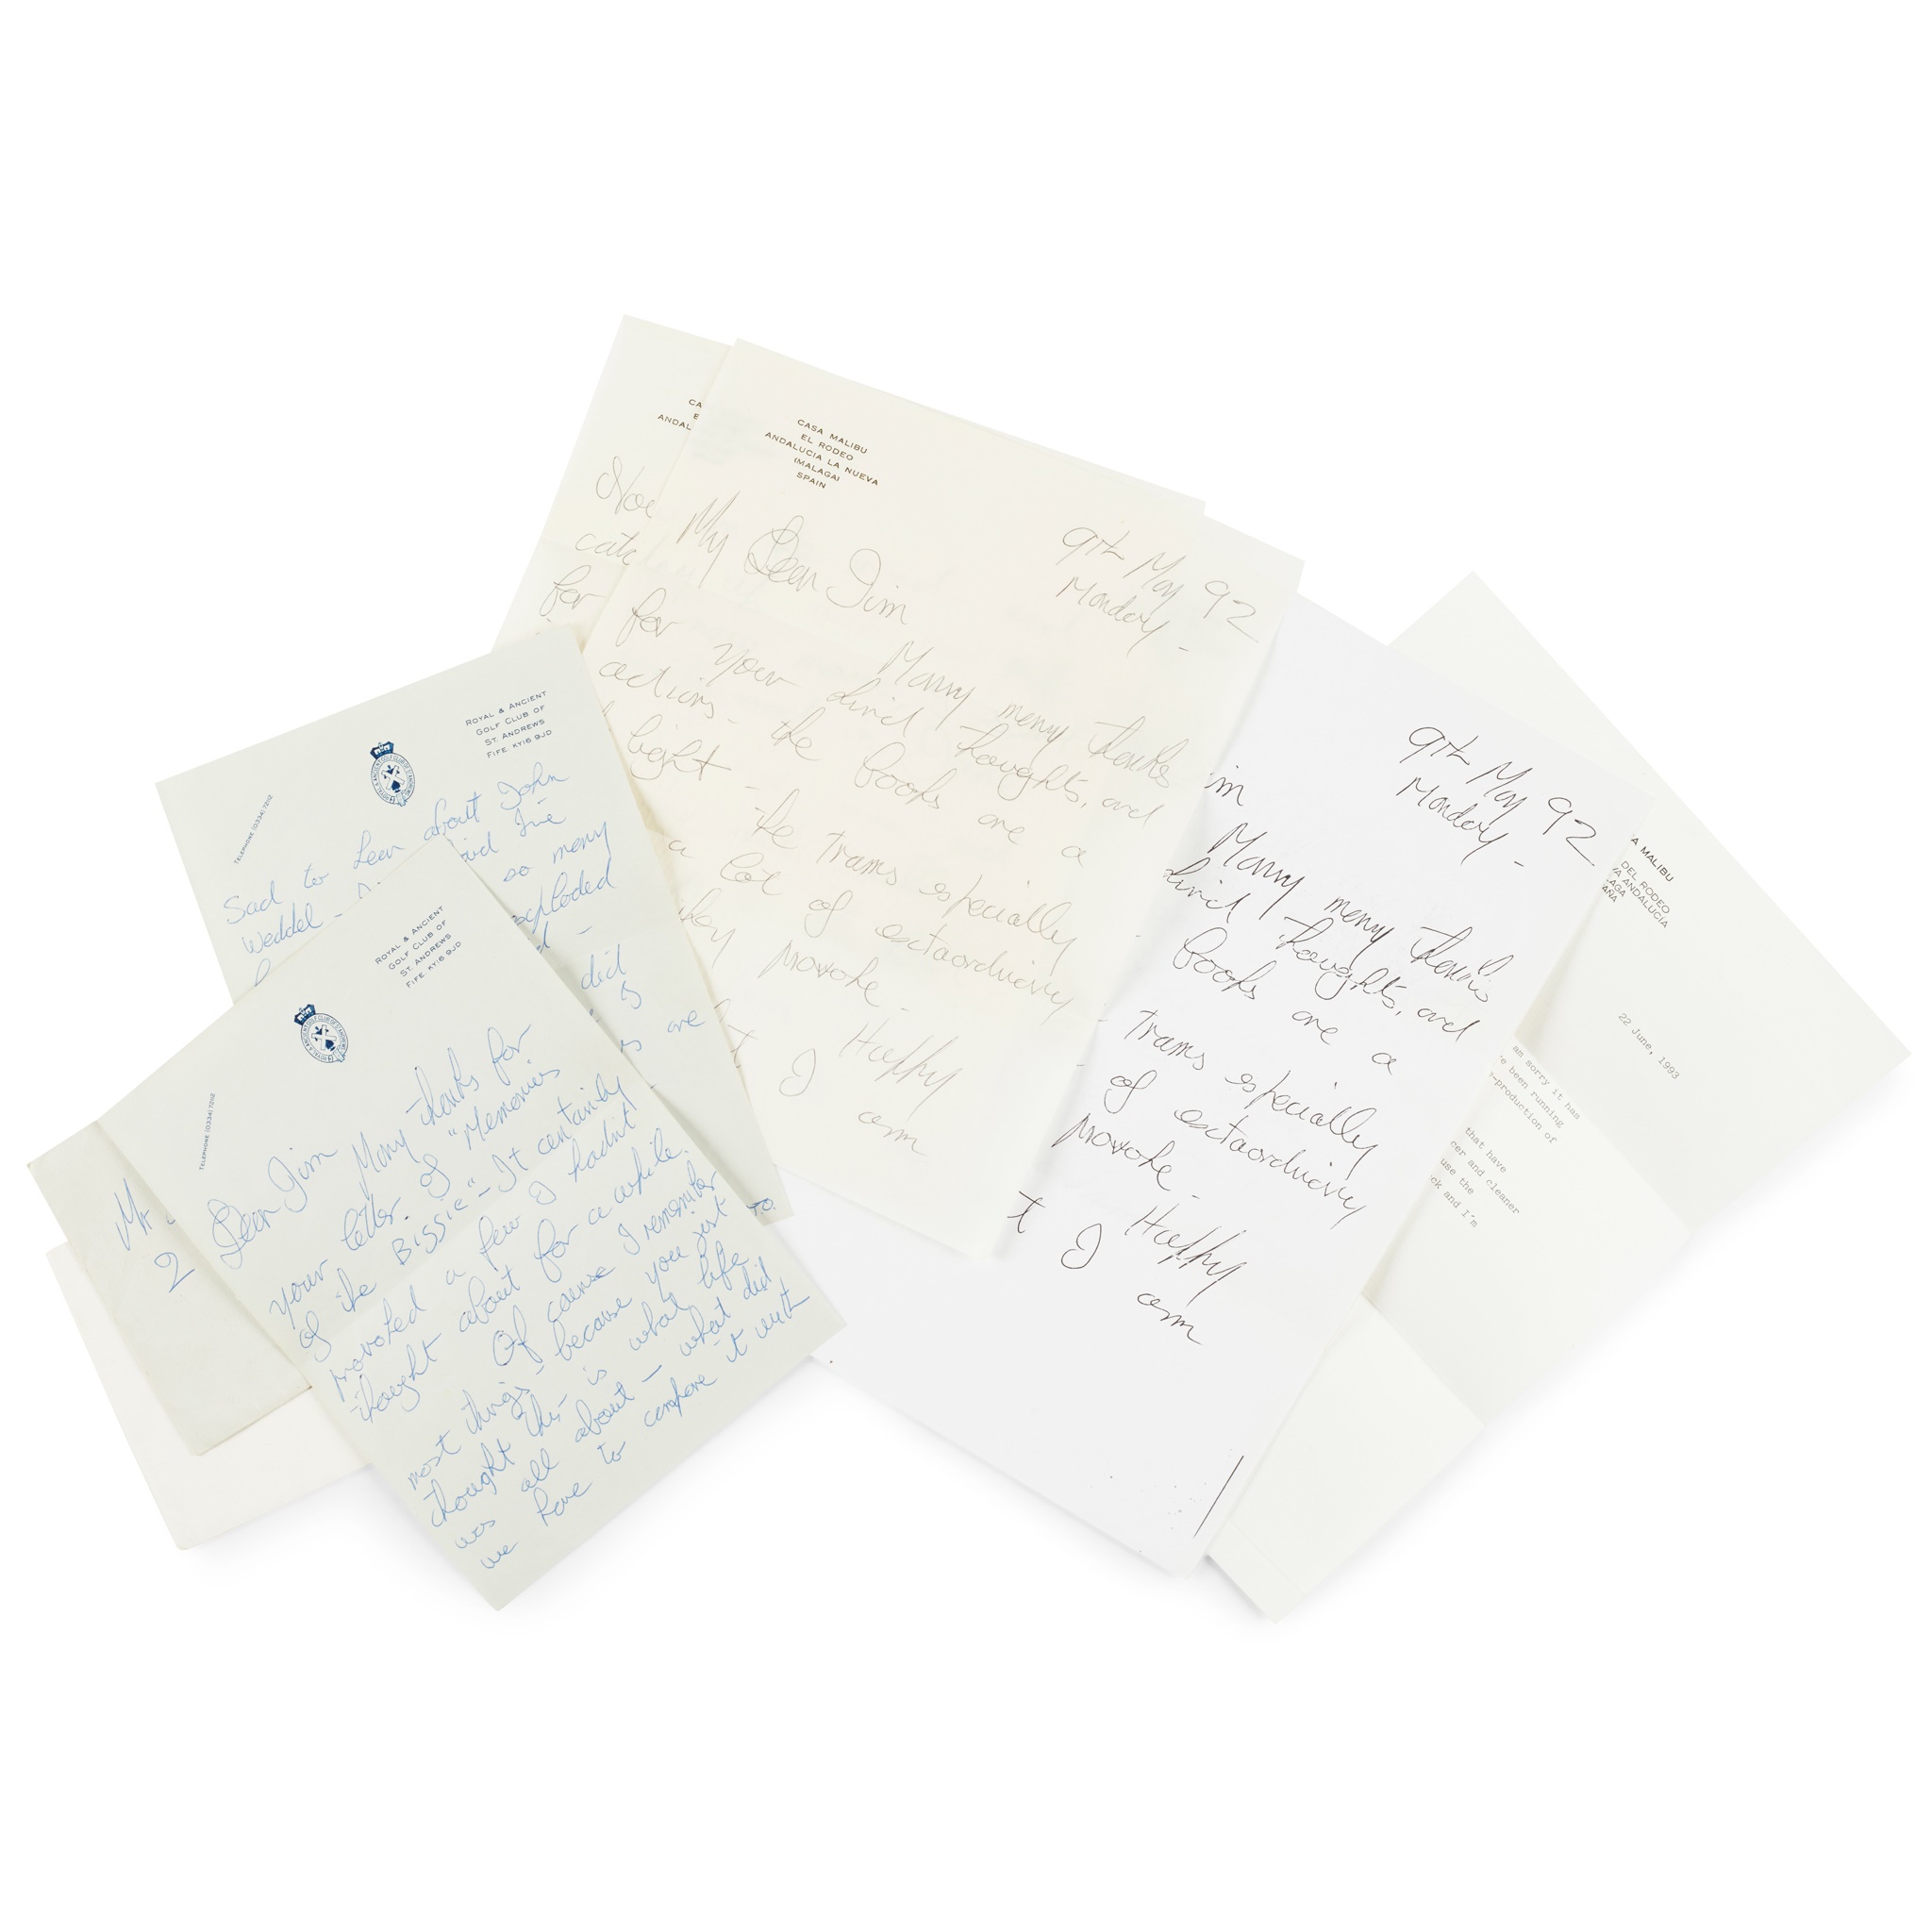 CASA MALIBU
EL RODEO
ANDALUCIA LA NUEVA
(MALAGA)
SPAIN
9th May 92
Monday -
My Dear Jim
Many meny thanks
for your kind thoughts, and
actions - the books are a
light - the Trams especially
a lot of extaordinary
they provoke -
Happy
t I am
CA
E
ANDAL
Noe
catc
for
ROYAL & ANCIENT
GOLF CLUB OF
ST. ANDREWS
FIFE KY16 9JD
TELEPHONE (0334) 72112
Sad to hear about John
Weddel -
so meny
exploded
did
are
ROYAL & ANCIENT
GOLF CLUB OF
ST. ANDREWS
FIFE KY16 9JD
TELEPHONE (0334) 72112
Dear Jim Many thanks for
your letter. of "Memories
of the BISSIE" - It certainly
provoked a few I hadn't
thought about for a while.
Of cause I remember
most things - because you just
thought this is what life
was all about - what did
we have to compare it with
T.O.
Mr
2
im
9th May 92
Monday -
Many meny thanks
kind thoughts, and
books are a
Trams especially
of extaordinary
provoke -
Happy
t I am
A MALIBU
DEL RODEO,
VA ANDALUCIA
LAGA
AÑA
22 June, 1993
am sorry it has
e been running
-production of
that have
cer and cleaner
use the
ck and I'm